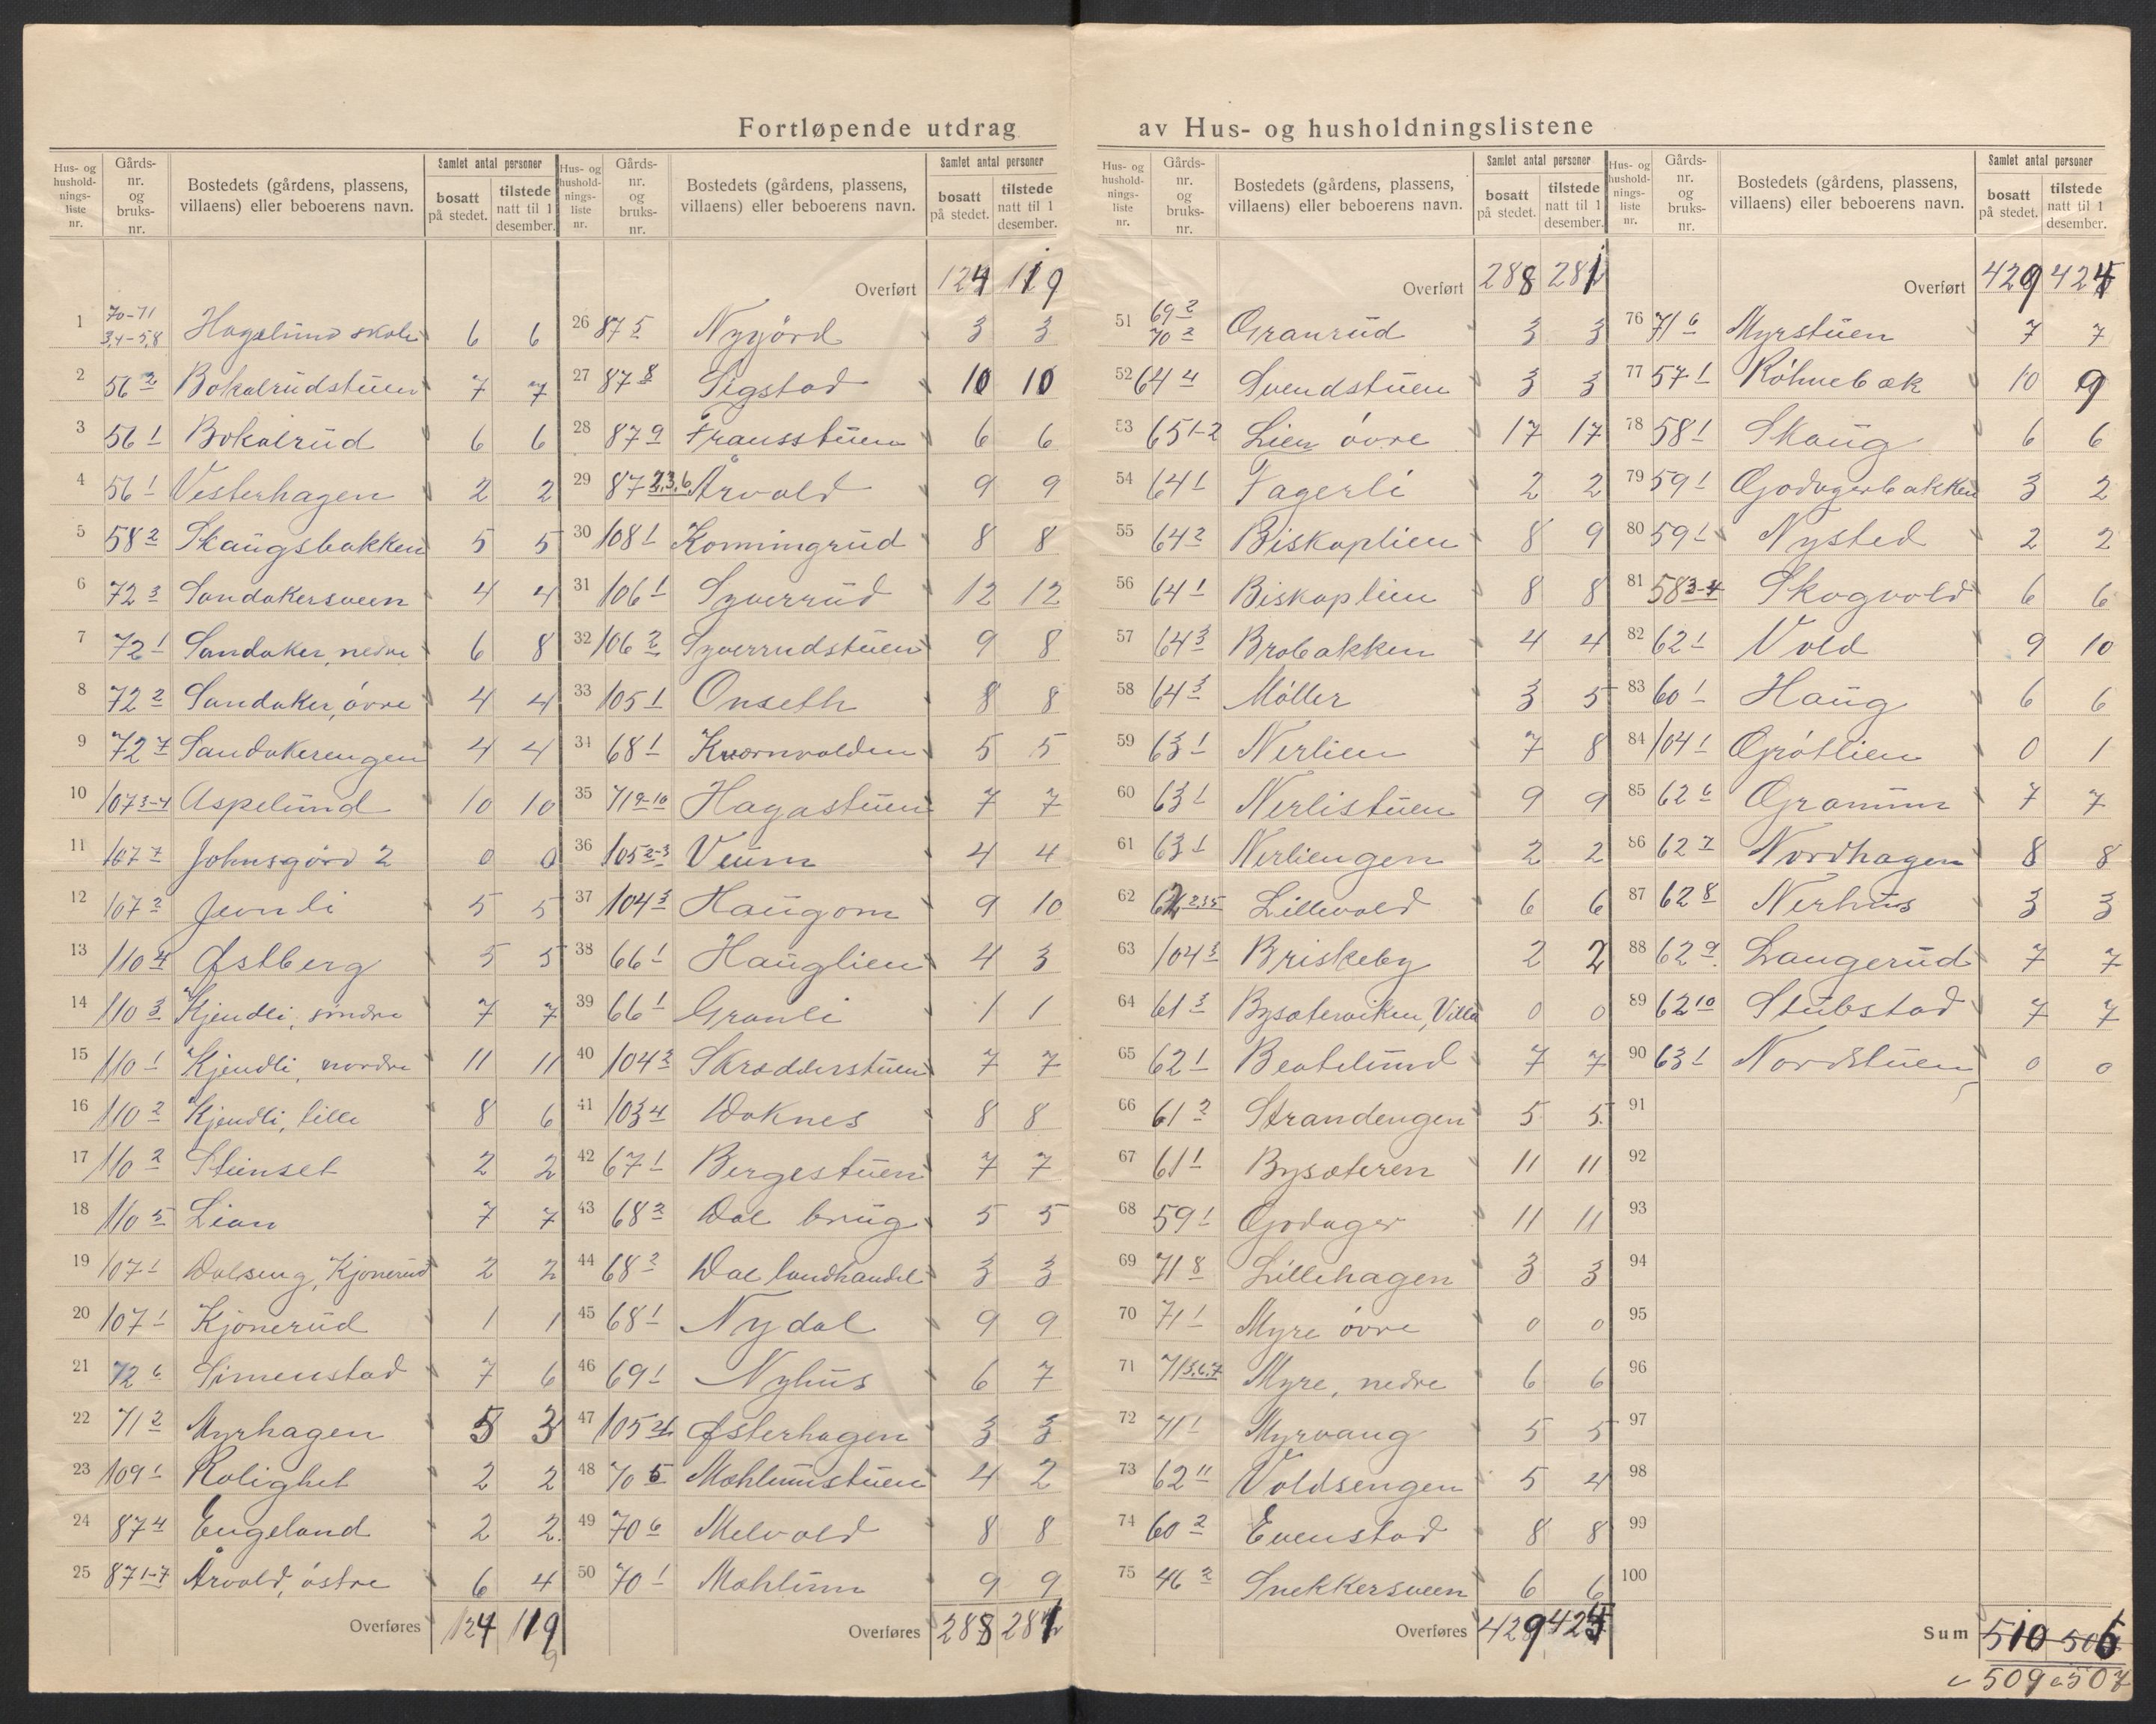 Fortløpende utdrag av Hus- og husholdningslistene
Hus- og husholdningsliste nr. | Gårds- nr. og bruks- nr. | Bostedets (gårdens, plassens, villaens) eller beboerens navn. | Samlet antal personer | bosatt på stedet. | tilstede natt til 1 desember.
1 70-71 3,4-5,8 Hagelund skole 6 6
2 56 2 Bokalrudstuen 7 7
3 56 1 Bokalrud 6 6
4 56 1 Vesterhagen 2 2
5 58 2 Skaugsbakken 5 5
6 72 3 Sandakersveen 4 4
7 72 1 Sandaker, nedre 6 8
8 72 2 Sandaker, övre 4 4
9 72 7 Sandakerengen 4 4
10 107 3-4 Aspelund 10 10
11 107 7 Johnsgård 2 0 0
12 107 2 Jevnli 5 5
13 110 4 Østberg 5 5
14 110 3 Kjendli, söndre 7 7
15 110 1 Kjendli, nordre 11 11
16 110 2 Kjendli, lille 8 6
17 110 2 Stenset 2 2
18 110 5 Lian 7 7
19 107 1 Dalseng, Kjönerud 2 2
20 107 1 Kjönerud 1 1
21 72 6 Simenstad 7 6
22 71 2 Myrhagen 5 3
23 109 1 Rolighet 2 2
24 87 4 Engeland 2 2
25 87 1-7 Årvold, östre 6 4
Overføres 124 119
Hus- og husholdningsliste nr. | Gårds- nr. og bruks- nr. | Bostedets (gårdens, plassens, villaens) eller beboerens navn. | Samlet antal personer | bosatt på stedet. | tilstede natt til 1 desember.
Overført 124 119
26 87 5 Nygård 3 3
27 87 8 Sigstad 10 10
28 87 9 Fransstuen 6 6
29 87 2,3,6 Årvold 9 9
30 108 1 Konningrud 8 8
31 106 1 Syverrud 12 12
32 106 2 Syverrudstuen 9 8
33 105 1 Onseth 8 8
34 68 1 Kværnvolden 5 5
35 71 9-10 Hagastuen 7 7
36 105 2-3 Veum 4 4
37 104 3 Haugom 9 10
38 66 1 Hauglien 4 3
39 66 1 Granli 1 1
40 104 2 Skrædderstuen 7 7
41 103 4 Doknes 8 8
42 67 1 Bergestuen 7 7
43 68 2 Dal brug 5 5
44 68 2 Dal landhandel 3 3
45 68 1 Nydal 9 9
46 69 1 Nyhus 6 7
47 105 4 Østerhagen 3 3
48 70 5 Mæhlumstuen 4 2
49 70 6 Melvold 8 8
50 70 1 Mæhlum 9 9
Overføres 288 281
Hus- og husholdningsliste nr. | Gårds- nr. og bruks- nr. | Bostedets (gårdens, plassens, villaens) eller beboerens navn. | Samlet antal personer | bosatt på stedet. | tilstede natt til 1 desember.
Overført 288 281
51 69 2 70 2 Granrud 3 3
52 64 4 Svendstuen 3 3
53 65 1-2 Lien övre 17 17
54 64 1 Fagerli 2 2
55 64 2 Biskoplien 8 9
56 64 1 Biskoplien 8 8
57 64 3 Brobakken 4 4
58 64 3 Möller 3 5
59 63 1 Nerlien 7 8
60 63 1 Nerlistuen 9 9
61 63 1 Nerliengen 2 2
62 62 2.3.5 Lillevold 6 6
63 104 3 Briskeby 2 2
64 61 3 Bysæterviken, Villa 0 0
65 62 1 Beatelund 7 7
66 61 2 Strandengen 5 5
67 61 1 Bysæteren 11 11
68 59 1 Godager 11 11
69 71 8 Lillehagen 3 3
70 71 1 Myre övre 0 0
71 71 3.6.7 Myre, nedre 6 6
72 71 1 Myrvang 5 5
73 62 11 Voldsengen 5 4
74 60 2 Evenstad 8 8
75 46 2 Snekkersveen 6 6
Overføres 429 425
Hus- og husholdningsliste nr. | Gårds- nr. og bruks- nr. | Bostedets (gårdens, plassens, villaens) eller beboerens navn. | Samlet antal personer | bosatt på stedet. | tilstede natt til 1 desember.
Overført 429 425
76 71 6 Myrstuen 7 7
77 57 1 Röhnebæk 10 9
78 58 1 Skaug 6 6
79 59 1 Godagerbakken 3 2
80 59 1 Nysted 2 2
81 58 3-4 Skogvold 6 6
82 62 1 Vold 9 10
83 60 1 Haug 6 6
84 104 1 Grötlien 0 1
85 62 6 Granum 7 7
86 62 7 Nordhagen 8 8
87 62 8 Nerhus 3 3
88 62 9 Langerud 7 7
89 62 10 Stubstad 7 7
90 63 1 Nordstuen 0 0
91
92
93
94
95
96
97
98
99
100
Sum 510 506
509 507